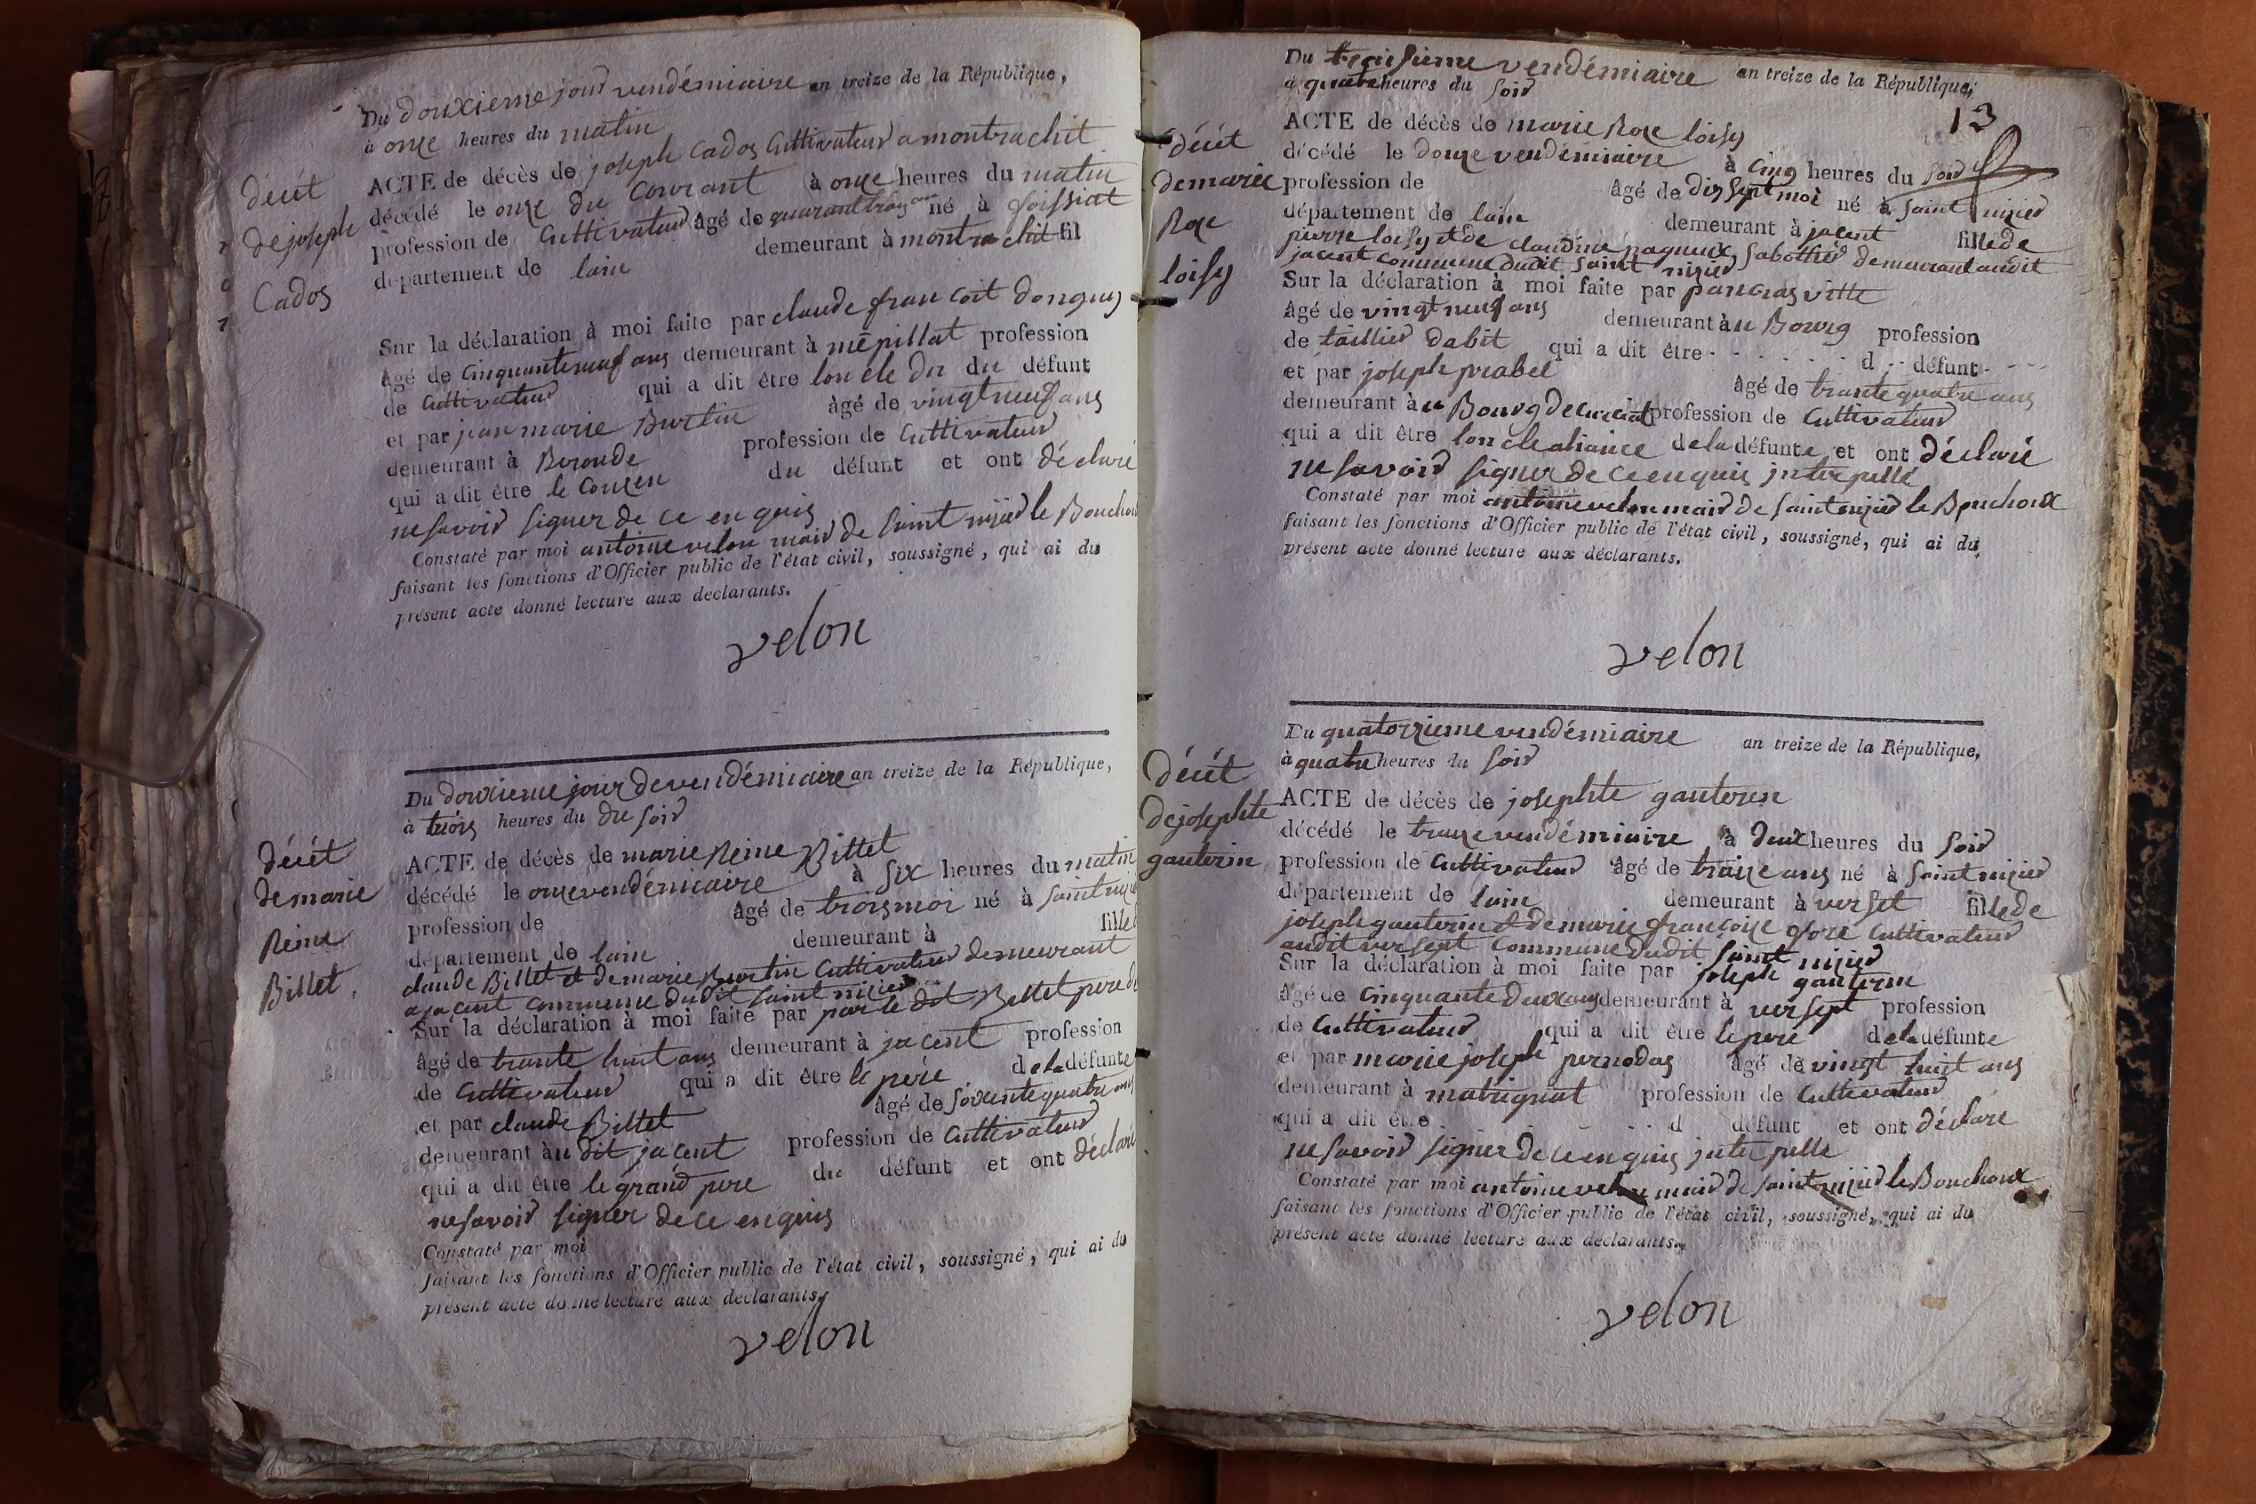 Du douxieme jour vendémiaire an treize de la République,
à onze heures du matin
décét
de joseph
Cados
ACTE de décès de joseph Cados Cultivateur a montrachit
décédé le onze du courant à onze heures du matin
profession de Cultivateur âgé de quarant troy ans né à foissiat
département de lain demeurant à montrachit fil
Sur la déclaration à moi faite par claude francoit donguy
âgé de cinquanteneuf ans demeurant à mépillat profession
de Cultivateur qui a dit être loncle du du défunt
et par jean marie Burtin âgé de vingtneuf ans
demeurant à Beronde profession de Cultivateur
qui a dit être le Couzen du défunt et ont déclaré
nesavoir signer de ce enquis
Constaté par moi antoine velon mair de saint nizier le Bouchou
faisant les fonctions d'Officier public de l'état civil, soussigné, qui ai du
présent acte donné lecture aux déclarants.
velon
Du douxieme jour de vendémiaire an treize de la République,
à trois heures du du soir
décét
de marie
Reine
Billet
ACTE de décès de marie Reine Billet
décédé le onze vendémiaire à six heures du matin
profession de âgé de trois moi né à saint nizie
département de lain demeurant à fille
claude Billet et de marie Burtin Cultivateur demeurant
a jacent commune dudit saint nizier
Sur la déclaration à moi faite par par le dit Billet pere de
âgé de trante huit ans demeurant à jacent profession
de Cultivateur qui a dit être le pere de la défunte
et par claude Billet âgé de sovente quatre ans
demeurant àu dit jacent profession de Cultivateur
qui a dit être le grand pere du défunt et ont déclaré
nesavoir signer de ce enquis
Constaté par moi
faisant les fonctions d'Officier public de l'état civil, soussigné, qui ai du
présent acte donné lecture aux déclarants.
velon
Du traisieme vendémiaire an treize de la République,
à quatre heures du soir
13
décét
de marie
Roze
loisy
ACTE de décès de marie Roze loisy
décédé le douze vendémiaire à cinq heures du soir
profession de âgé de dix sept moi né à saint nizier
département de lain demeurant à jacent fille de
pierre loisy et de claudine pagneux sabottier demeurant audit
jacent commune dudit saint nizier
Sur la déclaration à moi faite par pancras ville
âgé de vingt neuf ans demeurant àu Bourg profession
de taillier dabit qui a dit être - - - - - - d - - défunt - - -
et par joseph prabel âgé de trante quatre ans
demeurant àu Bourg de curciat profession de Cultivateur
qui a dit être loncle aliance de la défunte et ont déclaré
ne savoir signer de ce enquis interpellé
Constaté par moi antoine velon mair de saint nizier le Bouchoux
faisant les fonctions d'Officier public de l'état civil, soussigné, qui ai du
présent acte donné lecture aux déclarants.
velon
Du quatorzieme vendémiaire an treize de la République,
à quatre heures du soir
décét
de josephte
gauterin
ACTE de décès de josephte gauteren
décédé le traize vendémiaire à deux heures du soir
profession de Cultivateur âgé de traize ans né à saint nizier
département de lain demeurant à verset fille de
joseph gauterin et de marie françoise gore Cultivateur
audit versept commune dudit saint nizier
Sur la déclaration à moi faite par joseph gauterin
âgé de cinquante deux ans demeurant à versept profession
de Cultivateur qui a dit être le pere de la défunte
et par marie joseph pernodas âgé de vingt huit ans
demeurant à matrignat profession de Cultivateur
qui a dit être - - - d défunt et ont déclaré
ne savoir signer de ce enquis interpellé
Constaté par moi antoine velon mair de saint nizier le Bouchoux
faisant les fonctions d'Officier public de l'état civil, soussigné, qui ai du
présent acte donné lecture aux déclarants.
velon